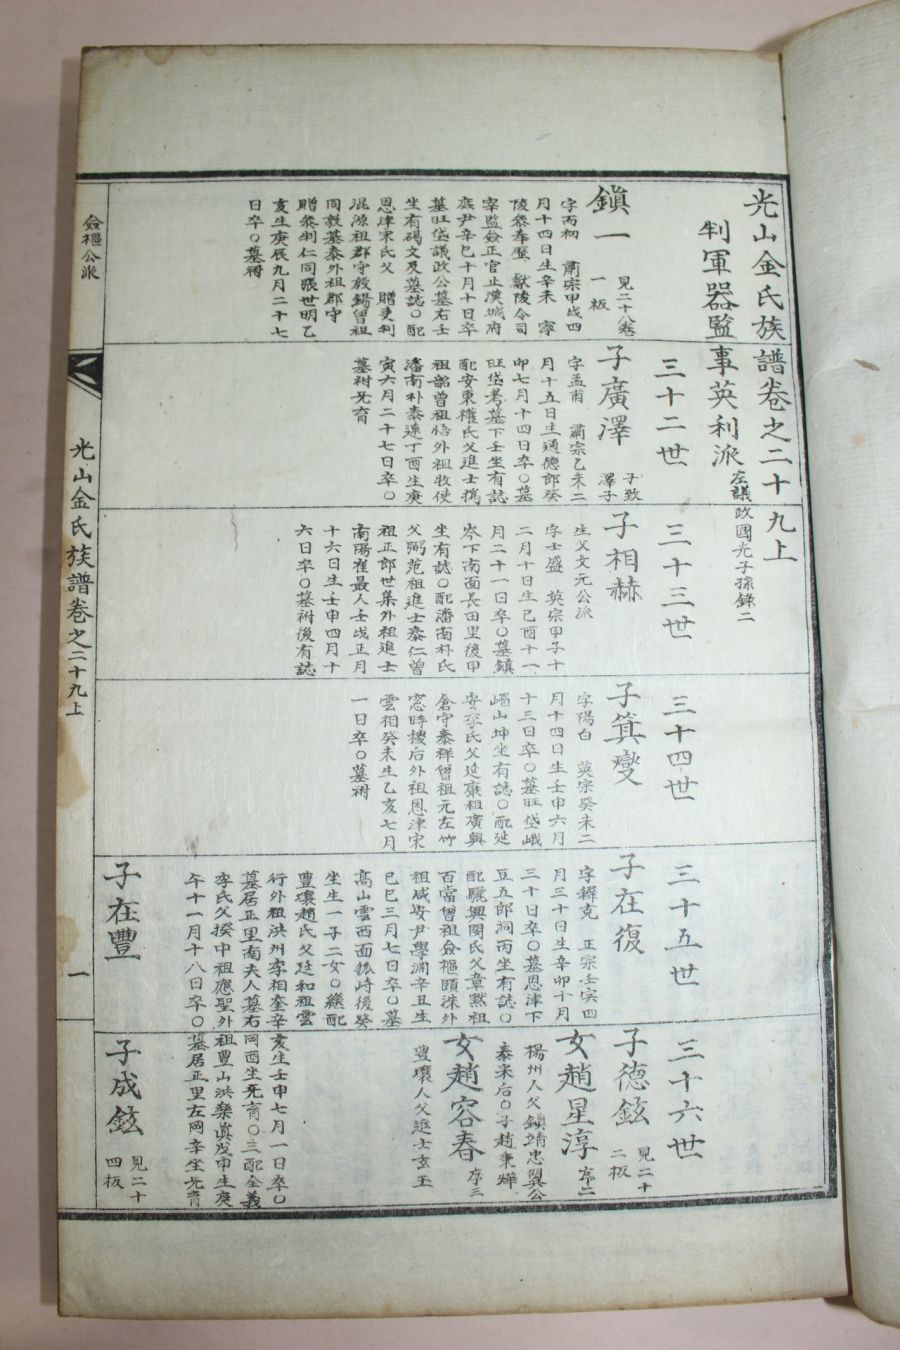 光山金氏族譜卷之二十九上
判軍器監事英利派
左議政國光子孫錄二
鎭一
見二十八卷
一板
字丙初 肅宗甲戌四
月十四日生辛未 寧
陵參奉歷 獻陵令司
宰監僉正官止漢城府
庶尹辛巳十月十日卒
墓旺垈議政公墓右壬
坐有碣文及墓誌〇配
恩津宋氏父 贈吏判
混源祖郡守殷錫曾祖
同敦墓泰外祖郡守
贈參判仁同張世明乙
亥生庚辰九月二十七
日卒〇墓祔
三十二世
子廣澤
子致
澤子
字孟甫 肅宗乙未二
月十五日生通德郞癸
卯七月十四日卒〇墓
旺垈考墓下壬坐有誌
配安東權氏父進士攜
祖韶曾祖悟外祖牧使
潘南朴泰遠丁酉生庚
寅六月二十七日卒〇
墓祔无育
三十三世
子相赫
生父文元公派
字士盛 英宗甲子十
二月十日生己酉十一
月二十一日卒〇墓鎭
岑下南面長田里後甲
坐有誌〇配潘南朴氏
父弼范祖進士泰仁曾
祖正郞世集外祖進士
南陽崔最人壬戌正月
十六日生壬申四月十
六日卒〇墓祔後有誌
三十四世
子箕燮
字陽白 英宗癸未二
月十四日生壬申六月
十三日卒〇墓旺垈峨
嵋山坤坐有誌〇配延
安李氏父延康祖廣興
倉守泰祥曾祖元左竹
窓時㮨后外祖恩津宋
雲相癸未生乙亥七月
一日卒〇墓祔
三十五世
子在復
字穉克 正宗壬寅四
月三十日生辛卯十月
三十日卒〇墓恩津下
豆五郞洞丙坐有誌〇
配驪興閔氏父章默祖
百當曾祖僉樞頤洙外
祖咸安尹學淵辛丑生
己巳三月七日卒〇墓
高山雲西面狐峙後癸
坐生一子二女〇繼配
豊壤趙氏父廷和祖雲
行外祖洪州李相奎辛
亥生壬申七月一日卒〇
墓居正里南夫人墓右
岡酉坐无育〇三配全義
李氏父揆中祖應聖外
祖豊山洪樂眞戊申生庚
午十一月十八日卒〇
墓居正里左岡辛坐无育
子在豐
三十六世
子德鉉
見二十
二板
女趙星淳
序二
楊州人父鎭靖忠翼公
泰采后〇子趙秉燁
女趙容春
序三
豊壤人父進士玄玉
子成鉉
見二十
四板
僉樞公派
光山金氏族譜卷之二十九上
一